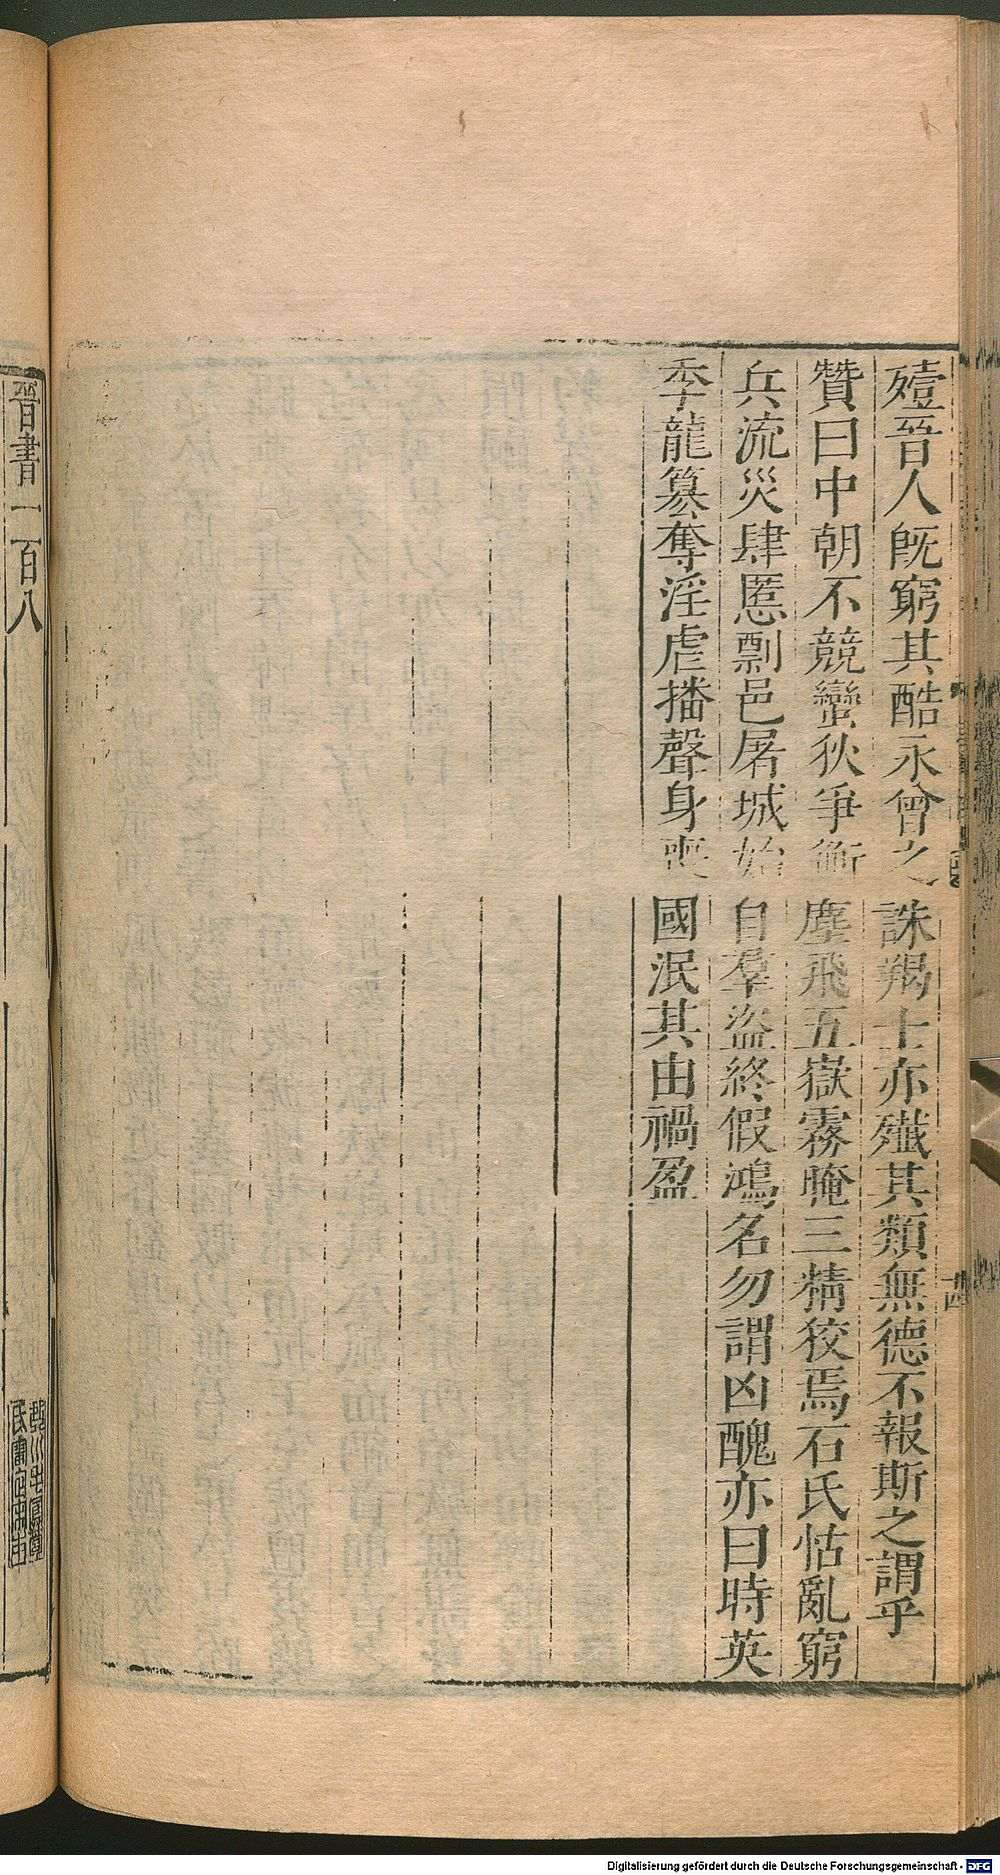 殪晉人旣窮其酷永曾之誅羯士亦殲其類無德不報斯之謂乎
贊曰中朝不競蠻狄爭衡塵飛五嶽霧晻三精狡焉石氏怙亂窮
兵流災肆慝剽邑屠城始自羣盜終假鴻名勿謂凶醜亦曰時英
季龍篡奪淫虐播聲身喪國泯其由禍盈
晉書一百八
Digitalisierung gefördert durch die Deutsche Forschungsgemeinschaft - DFG